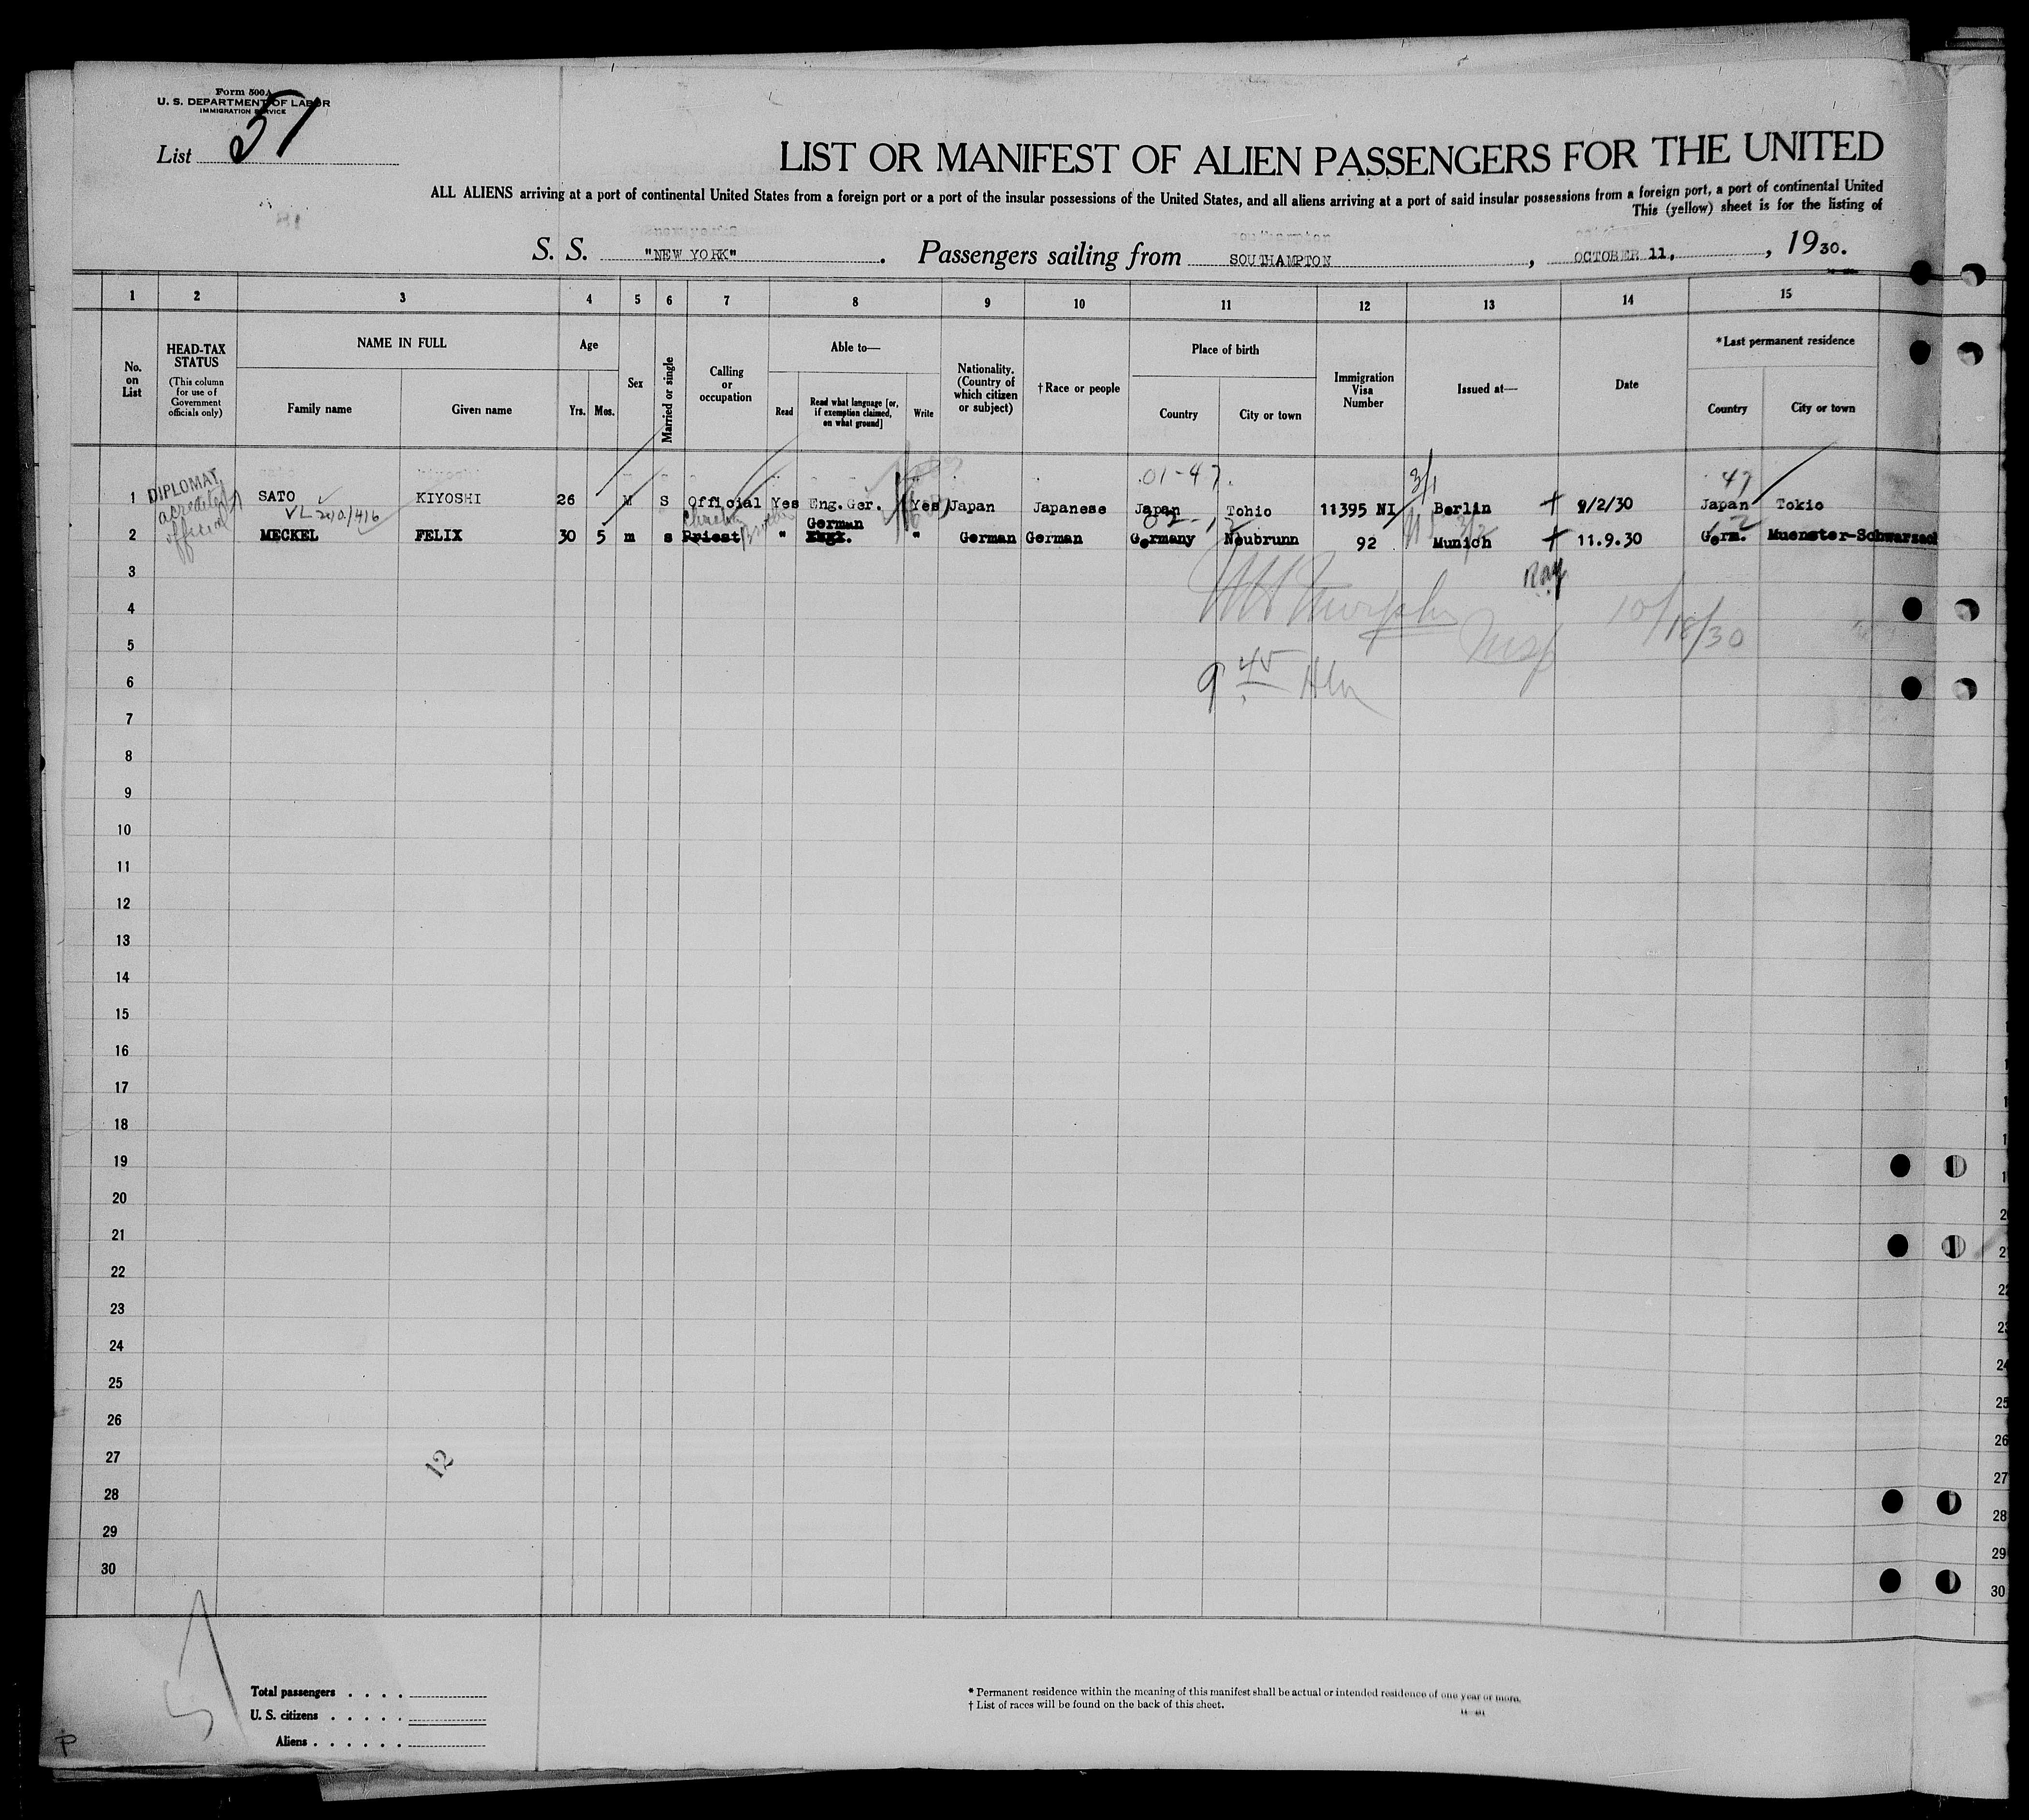 Form 500A
U. S. DEPARTMENT OF LABOR
IMMIGRATION SERVICE
List 51
LIST OR MANIFEST OF ALIEN PASSENGERS FOR THE UNITED
ALL ALIENS arriving at a port of continental United States from a foreign port or a port of the insular possessions of the United States, and all aliens arriving at a port of said insular possessions from a foreign port, a port of continental United
This (yellow) sheet is for the listing of
S. S. "NEW YORK". Passengers sailing from SOUTHAMPTON, OCTOBER 11., 1930.
1 2 3 4 5 6 7 8 9 10 11 12 13 14 15
No. on List
HEAD-TAX STATUS
(This column for use of Government officials only)
NAME IN FULL
Family name
Given name
Age
Yrs.
Mos.
Sex
Married or single
Calling or occupation
Able to—
Read
Read what language [or, if exemption claimed, on what ground]
Write
Nationality. (Country of which citizen or subject)
†Race or people
Place of birth
Country
City or town
Immigration Visa Number
Issued at—
Date
*Last permanent residence
Country
City or town
01-47 3/1 47
1 DIPLOMAT SATO KIYOSHI 26 M S Official Yes Eng. Ger. Yes Japan Japanese Japan Tohio 11395 NI Berlin 9/2/30 Japan Tokio
official
German
2 MECKEL FELIX 30 5 m s Priest " Engl. " German German Germany Neubrunn 92 Munich 11.9.30 Germ. Muenster-Schwarzach
3
4
10/18/30
5
Insp
6
9 45
7
8
9
10
11
12
13
14
15
16
17
18
19
20
21
22
23
24
25
26
27
12
28
29
30
20
21
22
23
24
25
26
27
28
29
30
Total passengers . . . .
U. S. citizens . . . . .
Aliens . . . . . .
* Permanent residence within the meaning of this manifest shall be actual or intended residence of one year or more.
† List of races will be found on the back of this sheet.
P